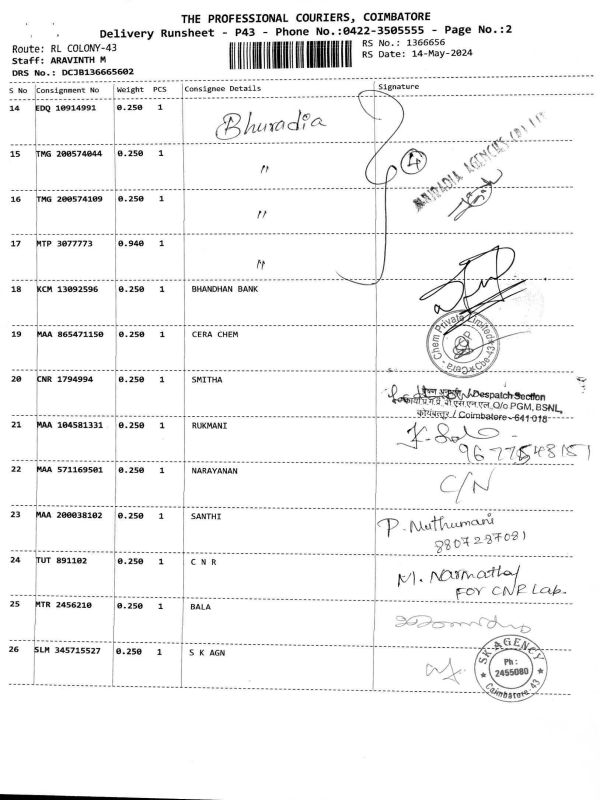 THE PROFESSIONAL COURIERS, COIMBATORE
Delivery Runsheet - P43 - Phone No.:0422-3505555 - Page No.:2
Route: RL COLONY-43
RS No.: 1366656
Staff: ARAVINTH M
RS Date: 14-May-2024
DRS No.: DCJB136665602
S No Consignment No Weight PCS Consignee Details Signature
14 EDQ 10914991 0.250 1 Bhuradia
15 TMG 200574044 0.250 1 "
4
AGENCIES
16 TMG 200574109 0.250 1 "
17 MTP 3077773 0.940 1 "
18 KCM 13092596 0.250 1 BHANDHAN BANK
19 MAA 865471150 0.250 1 CERA CHEM
Cera Chem Private Limited Cbe-43
20 CNR 1794994 0.250 1 SMITHA
प्रेषण अनुभाग / Despatch Section
O/o PGM, BSNL,
कोयंबत्तूर / Coimbatore - 641 018
21 MAA 104581331 0.250 1 RUKMANI
22 MAA 571169501 0.250 1 NARAYANAN C/N
23 MAA 200038102 0.250 1 SANTHI P. Muthumani
8807287081
24 TUT 891102 0.250 1 C N R M. Narmatha
FOR CNR Lab.
25 MTR 2456210 0.250 1 BALA
26 SLM 345715527 0.250 1 S K AGN
SK AGENCY
Ph :
2455080
Coimbatore 43